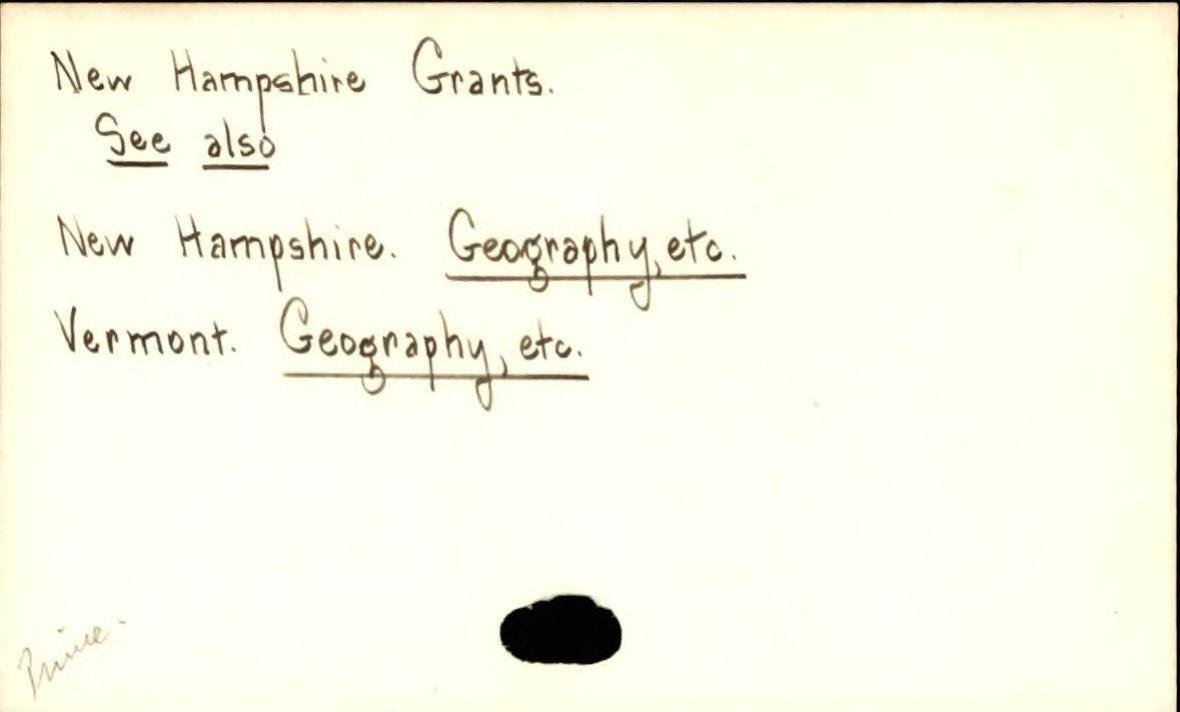 New Hampshire Grants.
See also
New Hampshire. Geography, etc.
Vermont. Geography, etc.